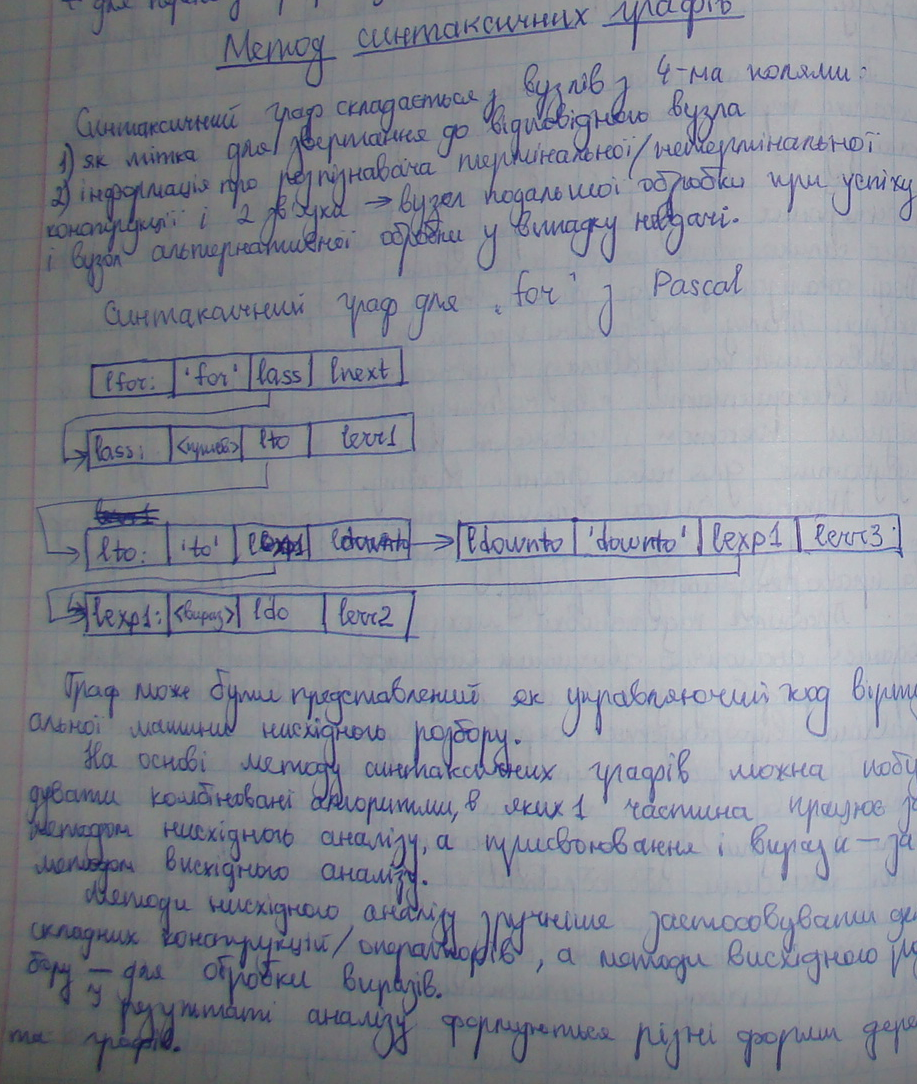 для
Метод синтаксичних графів
Синтаксичний граф складається з вузлів з 4-ма полями:
1) як мітка для звертання до відповідного вузла
2) інформація про розпізнавача термінальної/нетермінальної
конструкції і 2 зв'язка → вузел подальшої обробки при успіху
і вузол альтернативної обробки у випадку невдачі.
Синтаксичний граф для „for" з Pascal
lfor: 'for' lass lnext
lass: lto lerr1
lto: 'to' lexp1 ldownto → ldownto 'downto' lexp1 lerr3
lexp1: <вираз> ldo lerr2
Граф може бути представлений як управляючий код вірту
альної машини нисхідного розбору.
На основі методу синтаксичних графів можна побу
дувати комбіновані алгоритми, в яких 1 частина працює з
методом нисхідного аналізу, а присвоювання і вирази – за
методом висхідного аналізу.
Методи нисхідного аналізу зручніше застосовувати дл
складних конструкцій/операторів, а методи висхідного ро
бору – для обробки виразів.
У результаті аналізу формуються різні форми дере
та графів.